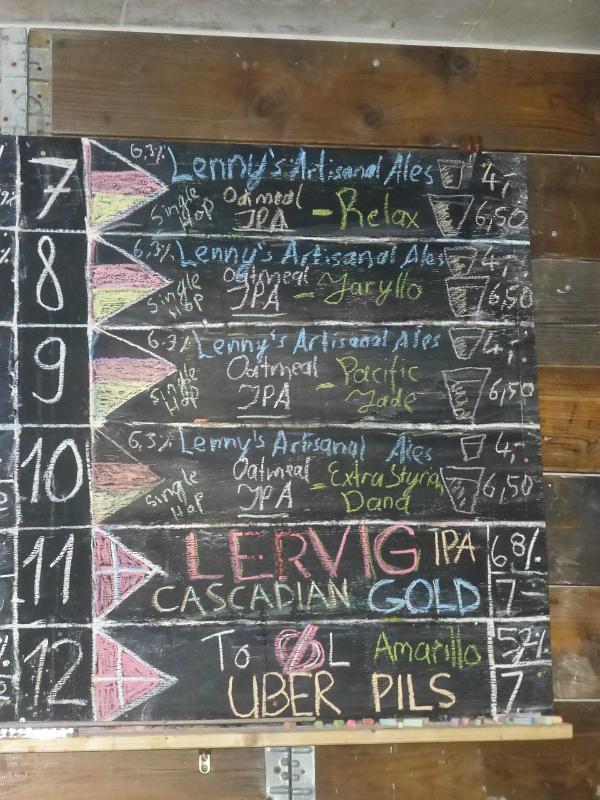 7
6,3%
Lenny's Artisanal Ales 4,-
Single Hop Oatmeal IPA - Relax 6,50
8
6,3%
Lenny's Artisanal Ales 4,-
Single Hop Oatmeal IPA - Jaryllo 6,50
9
6,3%
Lenny's Artisanal Ales 4,-
Single Hop Oatmeal IPA - Pacific Jade 6,50
10
6,3%
Lenny's Artisanal Ales 4,-
Single Hop Oatmeal IPA - Extra Styrian Dana 6,50
11
LERVIG IPA 6,8%
CASCADIAN GOLD 7-
12
To Øl Amarillo
UBER PILS 7,